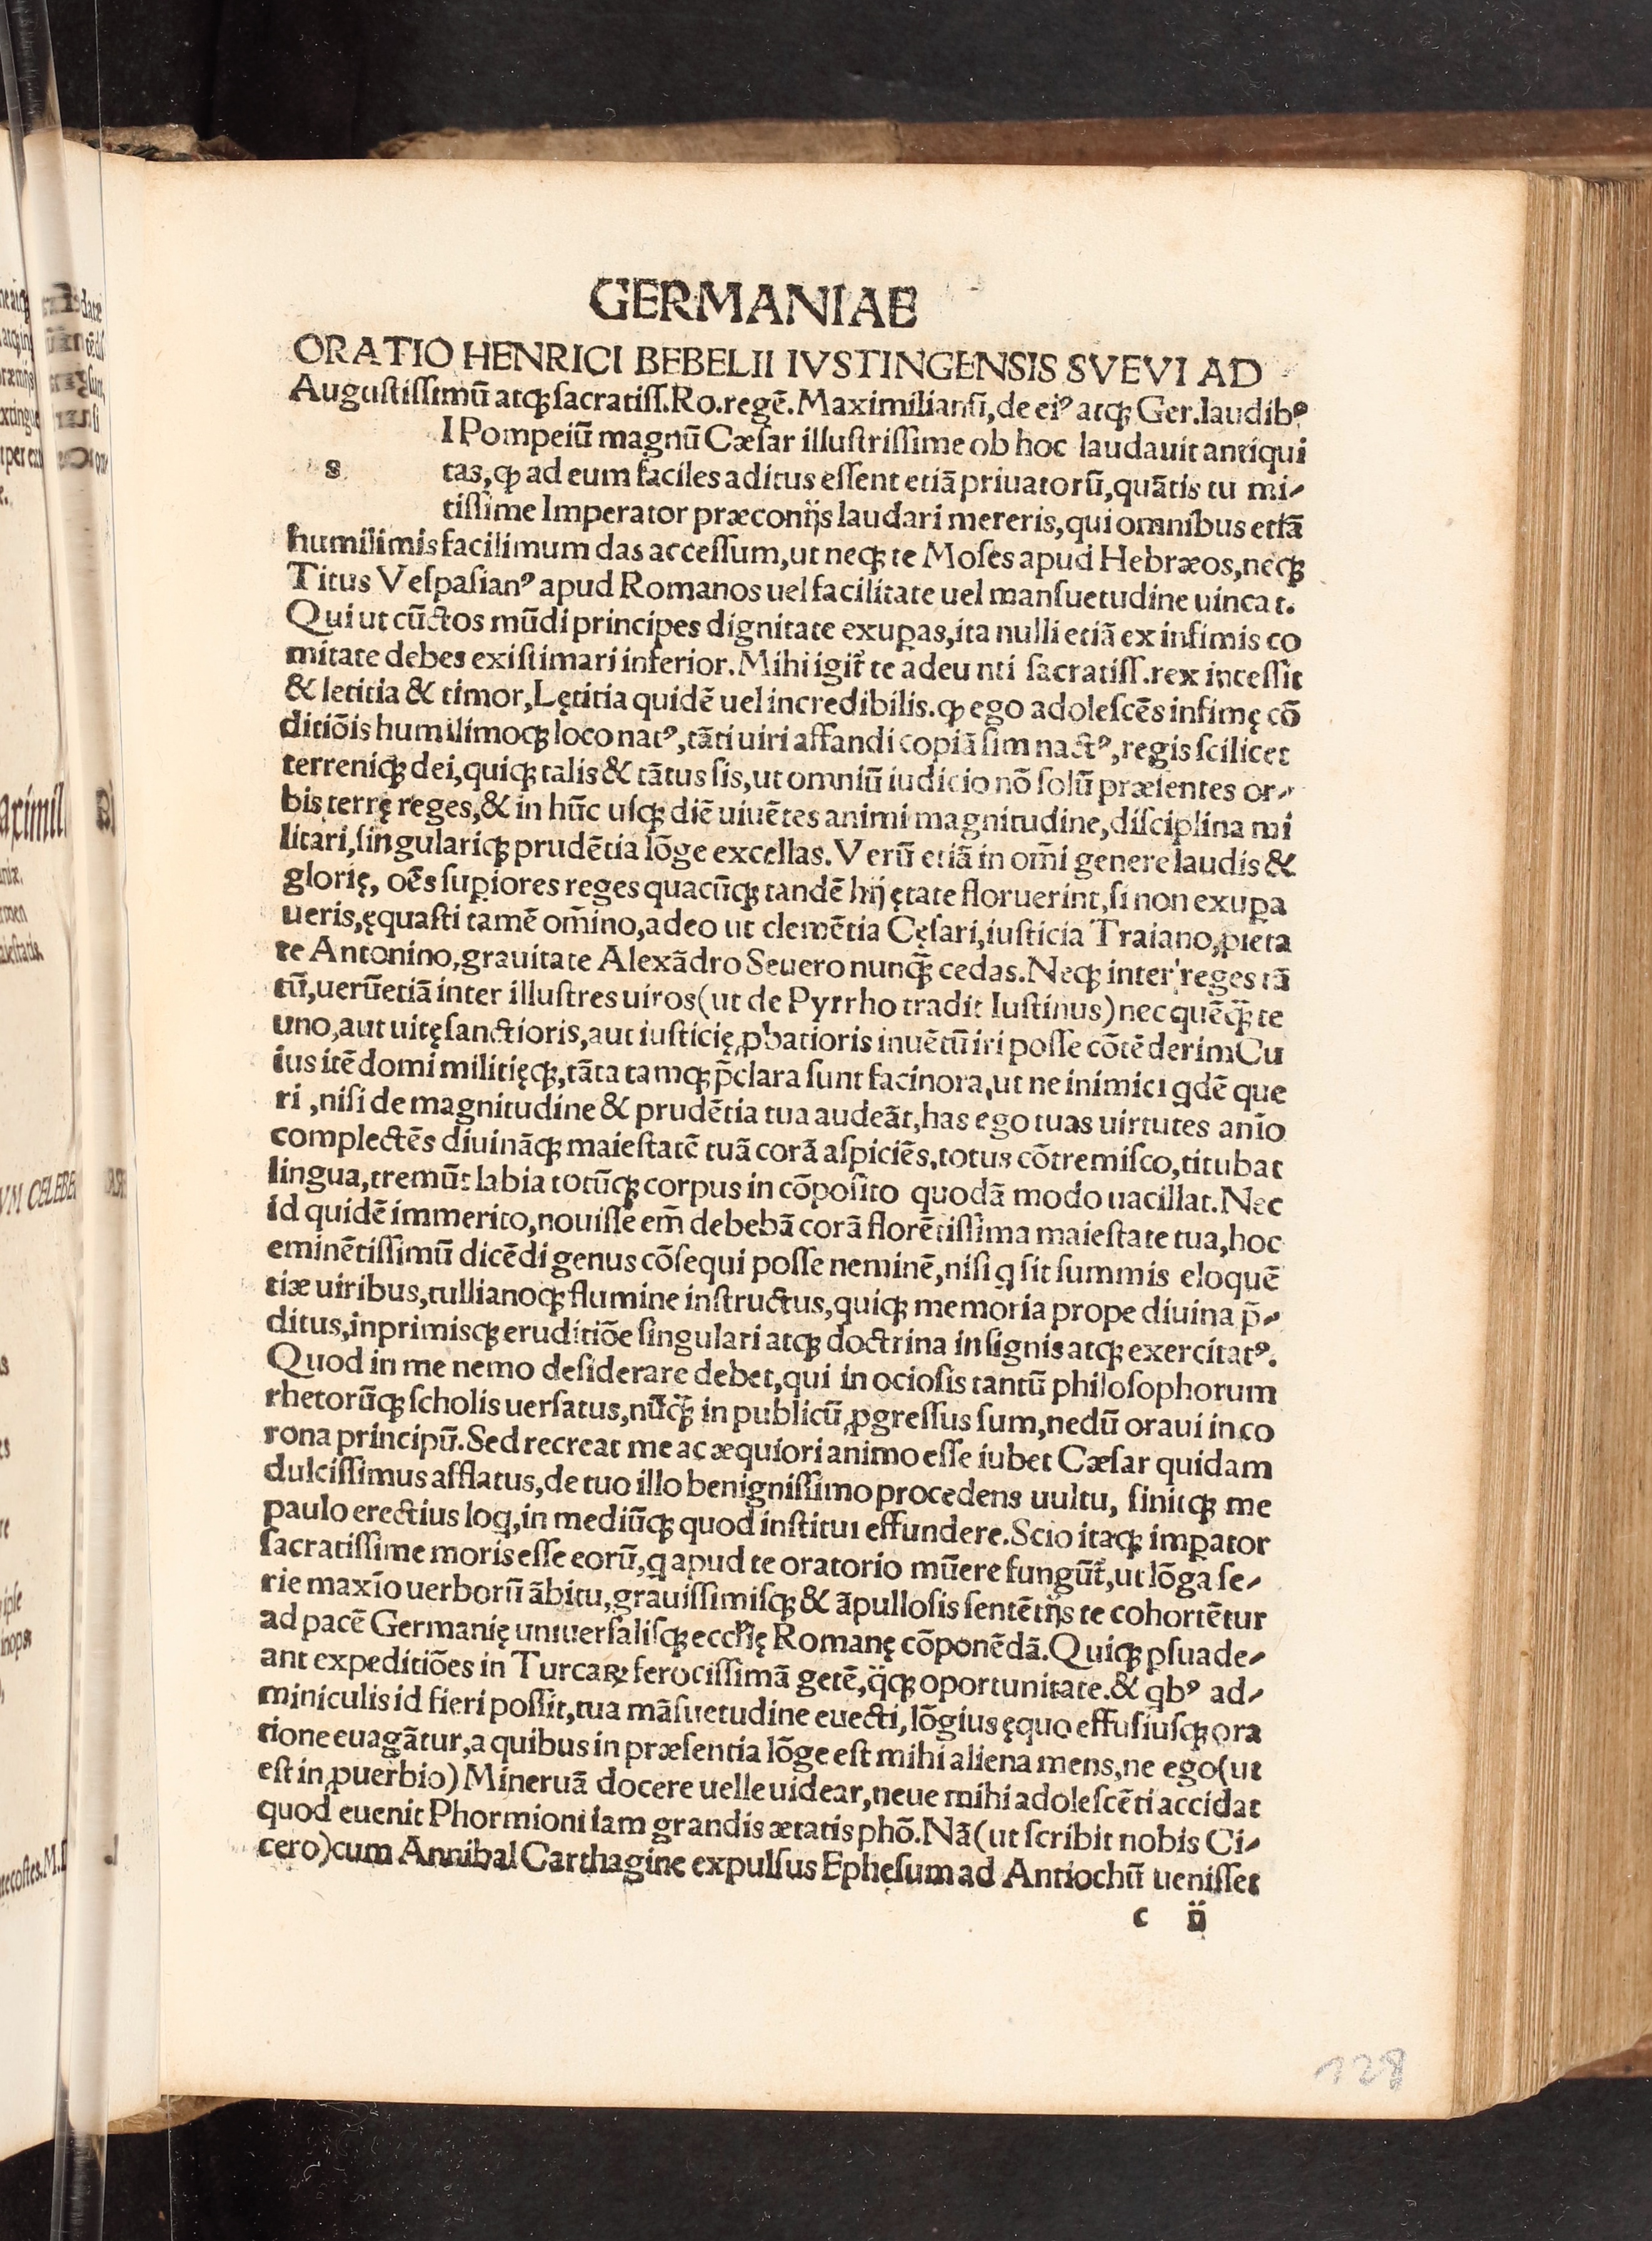 GERMANIAE
ORATIO HENRICI BEBELII IVSTINGENSIS SVEVI AD
Augustissimū atqꝫ sacratiss. Ro. regē. Maximilianū, de eiꝰ atqꝫ Ger. laudibꝰ
I Pompeiū magnū Cæsar illustrissime ob hoc laudauit antiqui
s tas, ꝙ ad eum faciles aditus essent etiā priuatorū, quātis tu mi⸗
tissime Imperator præconijs laudari mereris, qui omnibus etiā
humilimis facilimum das accessum, ut neqꝫ te Moses apud Hebræos, neqꝫ
Titus Vespasianꝰ apud Romanos uel facilitate uel mansuetudine uincat.
Qui ut cūctos mūdi principes dignitate exuꝑas, ita nulli etiā ex infimis co
mitate debes existimari inferior. Mihi igit̃ te adeunti sacratiss. rex incessit
& letitia & timor, Lętitia quidē uel incredibilis. ꝙ ego adolescēs infimę cō
ditiōis humilimoqꝫ loco natꝰ, tāti uiri affandi copiā sim nactꝰ, regis scilicet
terreniqꝫ dei, quiqꝫ talis & tātus sis, ut omniū iudicio nō solū præsentes or⸗
bis terrę reges, & in hūc usqꝫ diē uiuētes animi magnitudine, disciplina mi
litari, singulariqꝫ prudētia lōge excellas. Verū etiā in om̄i genere laudis &
glorię, oēs suꝑiores reges quacūqꝫ tandē hij ętate floruerint, si non exuꝑa
ueris, ęquasti tamē om̄ino, adeo ut clemētia Cęsari, iusticia Traiano, pieta
te Antonino, grauitate Alexādro Seuero nunqꝫ̄ cedas. Neqꝫ inter reges tā
tū, uerūetiā inter illustres uiros (ut de Pyrrho tradit Iustinus) nec quēqꝫ̄ te
uno, aut uitę sanctioris, aut iusticię ꝓbatioris inuētū iri posse cōtēderim Cu
ius itē domi militięqꝫ, tāta tamqꝫ p̄clara sunt facinora, ut ne inimici qdē que
ri, nisi de magnitudine & prudētia tua audeāt, has ego tuas uirtutes anīo
complectēs diuināqꝫ maiestatē tuā corā aspiciēs, totus cōtremisco, titubat
lingua, tremūt labia totūqꝫ corpus in cōposito quodā modo uacillat. Nec
id quidē immerito, nouisse em̄ debebā corā florētissima maiestate tua, hoc
eminētissimū dicēdi genus cōsequi posse neminē, nisi q sit summis eloquē
tiæ uiribus, tullianoqꝫ flumine instructus, quiqꝫ memoria prope diuina p̄⸗
ditus, inprimisqꝫ eruditiōe singulari atqꝫ doctrina insignis atqꝫ exercitatꝰ.
Quod in me nemo desiderare debet, qui in ociosis tantū philosophorum
rhetorūqꝫ scholis uersatus, nūqꝫ̄ in publicū ꝓgressus sum, nedū oraui in co
rona principū. Sed recreat me ac æquiori animo esse iubet Cæsar quidam
dulcissimus afflatus, de tuo illo benignissimo procedens uultu, sinitqꝫ me
paulo erectius loq, in mediūqꝫ quod institui effundere. Scio itaqꝫ imꝑator
sacratissime moris esse eorū, q apud te oratorio mūere fungūt̃, ut lōga se⸗
rie maxīo uerborū ābitu, grauissimisqꝫ & āpullosis sentētijs te cohortētur
ad pacē Germanię uniuersalisqꝫ eccl̄ię Romanę cōponēdā. Quiqꝫ ꝑsuade⸗
ant expeditiōes in Turcaꝝ ferocissimā getē, q̄qꝫ oportunitate. & qbꝰ ad⸗
miniculis id fieri possit, tua māsuetudine euecti, lōgius ęquo effusiusqꝫ ora
tione euagātur, a quibus in præsentia lōge est mihi aliena mens, ne ego (ut
est in ꝓuerbio) Mineruā docere uelle uidear, neue mihi adolescēti accidat
quod euenit Phormioni iam grandis ætatis phō. Nā (ut scribit nobis Ci⸗
cero) cum Annibal Carthagine expulsus Ephesum ad Antiochū uenisset
c ij
128